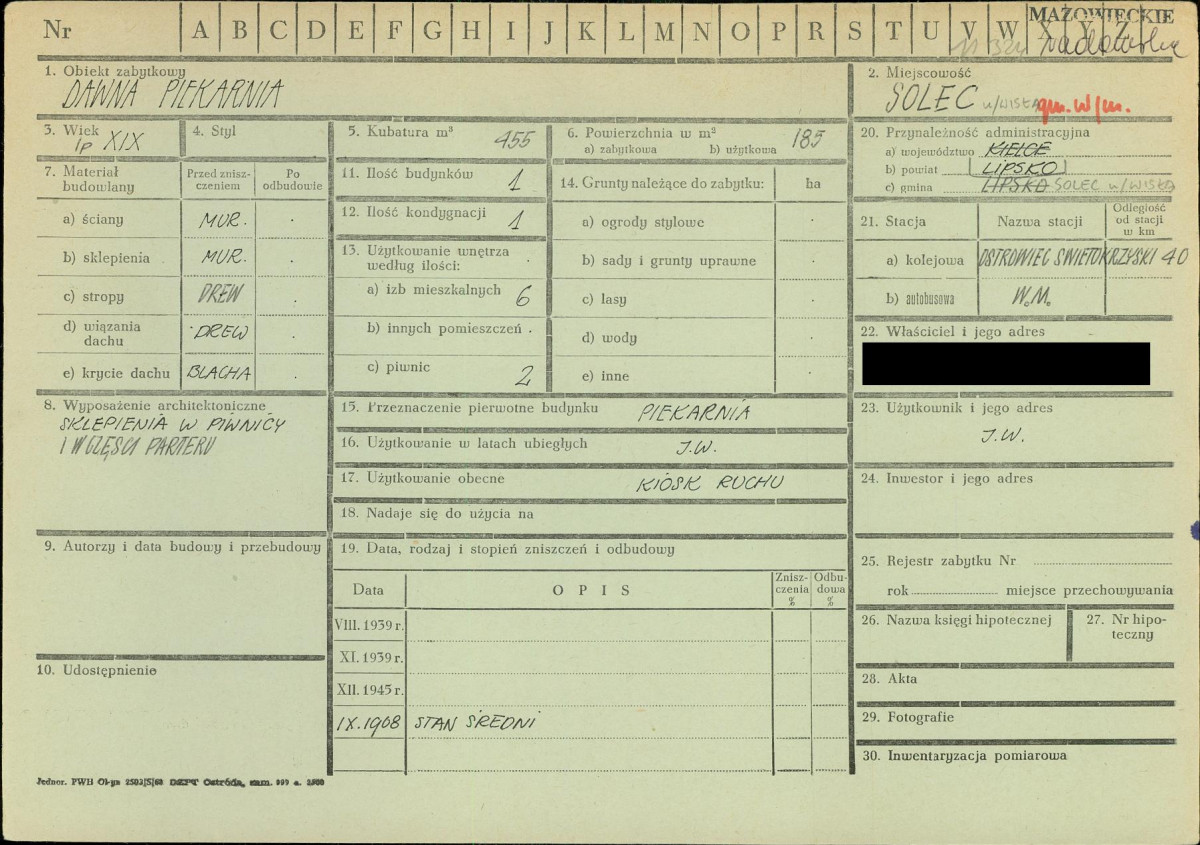 MAZOWIECKIE
Nr A B C D E F G H I J K L M N O P R S T U V W X Y Z
1. Obiekt zabytkowy
DAWNA PIEKARNIA
2. Miejscowość
SOLEC n/WISŁĄ gm. w/m.
3. Wiek
Ip XIX
4. Styl
5. Kubatura m³ 455
6. Powierzchnia w m²
a) zabytkowa b) użytkowa 185
7. Materiał budowlany
Przed zniszczeniem
Po odbudowie
a) ściany MUR.
b) sklepienia MUR.
c) stropy DREW
d) wiązania dachu DREW
e) krycie dachu BLACHA
8. Wyposażenie architektoniczne
SKLEPIENIA W PIWNICY
I W CZĘŚCI PARTERU
9. Autorzy i data budowy i przebudowy
10. Udostępnienie
11. Ilość budynków 1
12. Ilość kondygnacji 1
13. Użytkowanie wnętrza
według ilości:
a) izb mieszkalnych 6
b) innych pomieszczeń
c) piwnic 2
14. Grunty należące do zabytku: ha
a) ogrody stylowe
b) sady i grunty uprawne
c) lasy
d) wody
e) inne
15. Przeznaczenie pierwotne budynku PIEKARNIA
16. Użytkowanie w latach ubiegłych J.W.
17. Użytkowanie obecne KIOSK RUCHU
18. Nadaje się do użycia na
19. Data, rodzaj i stopień zniszczeń i odbudowy
Data OPIS Zniszczenia % Odbudowa %
VIII. 1939 r.
XI. 1939 r.
XII. 1945 r.
IX. 1968 STAN ŚREDNI
20. Przynależność administracyjna
a) województwo KIELCE
b) powiat LIPSKO
c) gmina LIPSKO SOLEC n/WISŁĄ
21. Stacja Nazwa stacji Odległość od stacji w km
a) kolejowa OSTROWIEC ŚWIĘTOKRZYSKI 40
b) autobusowa W.M.
22. Właściciel i jego adres
23. Użytkownik i jego adres
J.W.
24. Inwestor i jego adres
25. Rejestr zabytku Nr
rok miejsce przechowywania
26. Nazwa księgi hipotecznej
27. Nr hipoteczny
28. Akta
29. Fotografie
30. Inwentaryzacja pomiarowa